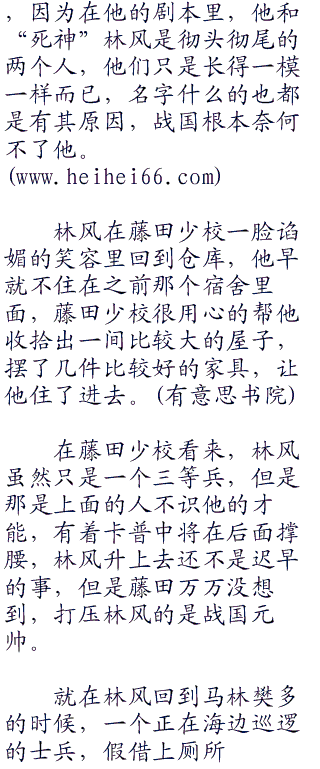 ，因为在他的剧本里，他和
“死神”林风是彻头彻尾的
两个人，他们只是长得一模
一样而已，名字什么的也都
是有其原因，战国根本奈何
不了他。
(www.heihei66.com)
林风在藤田少校一脸谄
媚的笑容里回到仓库，他早
就不住在之前那个宿舍里
面，藤田少校很用心的帮他
收拾出一间比较大的屋子，
摆了几件比较好的家具，让
他住了进去。(有意思书院)
在藤田少校看来，林风
虽然只是一个三等兵，但是
那是上面的人不识他的才
能，有着卡普中将在后面撑
腰，林风升上去还不是迟早
的事，但是藤田万万没想
到，打压林风的是战国元
帅。
就在林风回到马林樊多
的时候，一个正在海边巡逻
的士兵，假借上厕所